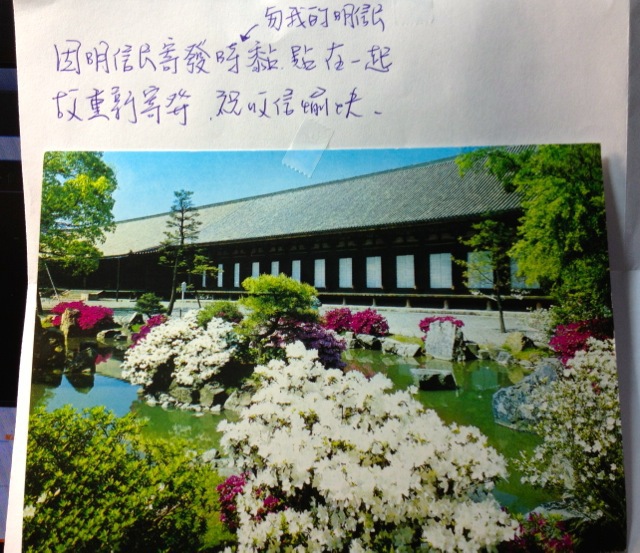 与我的明信片
因明信片寄發時黏點在一起
故重新寄發,祝收信愉快。